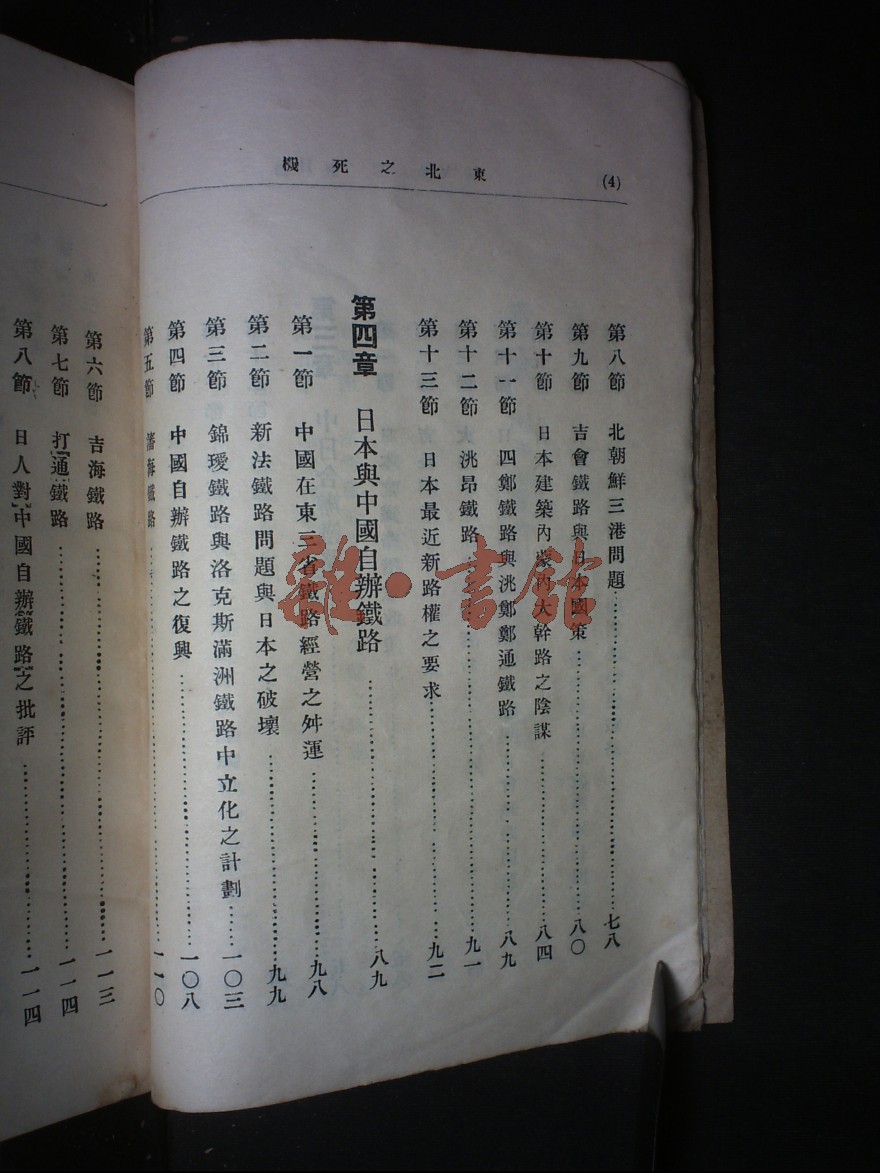 東北之死機
(4)
第八節 北朝鮮三港問題……七八
第九節 吉會鐵路與日本國策……八〇
第十節 日本建築內蒙內大幹路之陰謀……八四
第十一節 四鄭鐵路與洮鄭鄭通鐵路……八九
第十二節 洮昂鐵路……九一
第十三節 日本最近新路權之要求……九二
第四章 日本與中國自辦鐵路……八九
第一節 中國在東三省鐵路經營之舛運……九八
第二節 新法鐵路問題與日本之破壞……九九
第三節 錦璦鐵路與洛克斯滿洲鐵路中立化之計劃……一〇三
第四節 中國自辦鐵路之復興……一〇八
第五節 瀋海鐵路……一一〇
第六節 吉海鐵路……一一三
第七節 打通鐵路……一一四
第八節 日人對中國自辦鐵路之批評……一一四
雜·書館